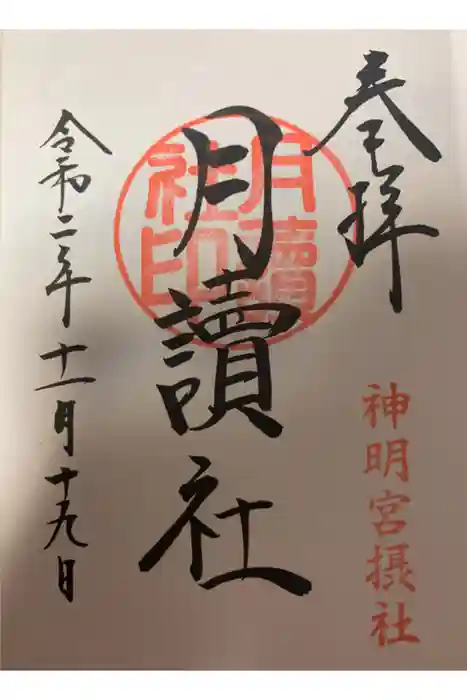 奉拝
神明宮摂社
月讀社
月讀社印
令和二年十一月十九日